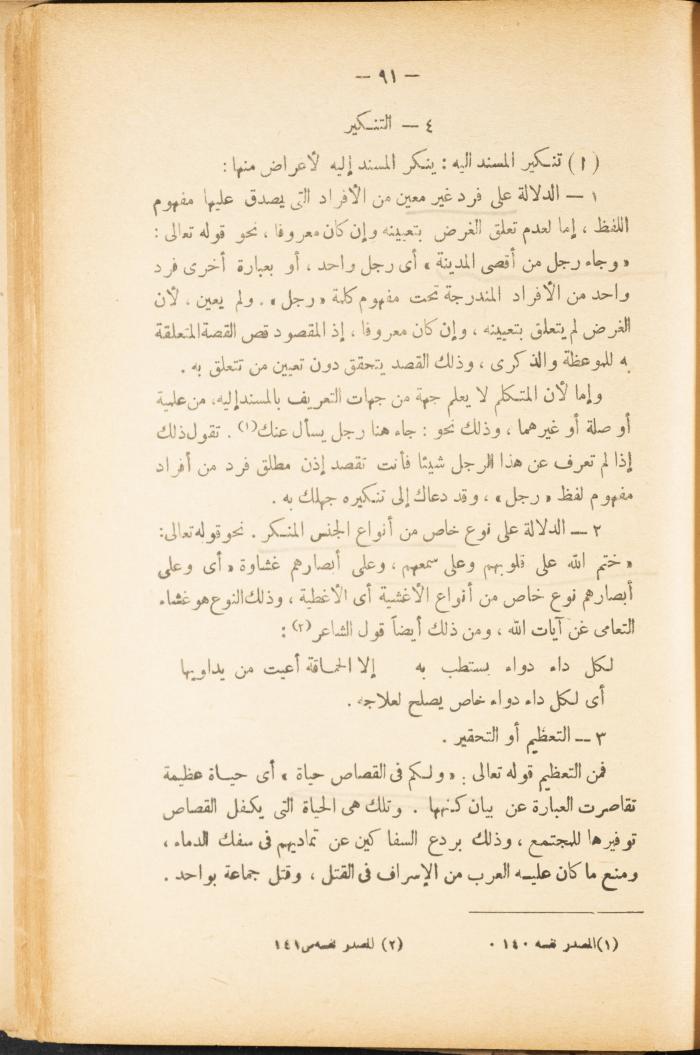 — ٩١ —
٤ — التنكير
(ا) تنكير المسند اليه : ينكر المسند إليه لأعراض منها :
١ — الدلالة على فرد غير معين من الأفراد التى يصدق عليها مفهوم
اللفظ ، إما لعدم تعلق الغرض بتعيينه وإن كان معروفا ، نحو قوله تعالى :
« وجاء رجل من أقصى المدينة » أى رجل واحد ، أو بعبارة أخرى فرد
واحد من الأفراد المندرجة تحت مفهوم كلمة « رجل » . ولم يعين ، لأن
الغرض لم يتعلق بتعيينه ، وإن كان معروفا ، إذ المقصود قص القصة المتعلقة
به للموعظة والذكرى ، وذلك القصد يتحقق دون تعيين من تتعلق به .
وإما لأن المتكلم لا يعلم جهة من جهات التعريف بالمسند إليه ، من علمية
أو صلة أو غيرهما ، وذلك نحو : جاء هنا رجل يسأل عنك (١) . تقول ذلك
إذا لم تعرف عن هذا الرجل شيئا فأنت تقصد إذن مطلق فرد من أفراد
مفهوم لفظ « رجل » ، وقد دعاك إلى تنكيره جهلك به .
٢ — الدلالة على نوع خاص من أنواع الجنس المنكر . نحو قوله تعالى :
« ختم الله على قلوبهم وعلى سمعهم ، وعلى أبصارهم غشاوة « أى وعلى
أبصارهم نوع خاص من أنواع الأغشية أى الأغطية ، وذلك النوع هو غشاء
التعامى عن آيات الله ، ومن ذلك أيضاً قول الشاعر (٢) :
لكل داء دواء يستطب به إلا الحماقة أعيت من يداويها
أى لكل داء دواء خاص يصلح لعلاجه .
٣ — التعظيم أو التحقير .
فمن التعظيم قوله تعالى : « ولكم فى القصاص حياة » أى حياة عظيمة
تقاصرت العبارة عن بيان كنهها . وتلك هى الحياة التى يكفل القصاص
توفيرها للمجتمع ، وذلك بردع السفاكين عن تماديهم فى سفك الدماء ،
ومنع ما كان عليه العرب من الإسراف فى القتل ، وقتل جماعة بواحد .
(١) المصدر نفسه ١٤٠ . (٢) المصدر نفسه ص ١٤١